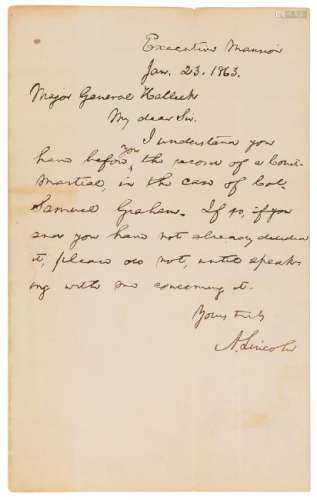 Executive Mansion
Jan. 23. 1863.
Major General Halleck
My dear Sir.
I understand you
have before you, the record of a Court
Martial, in the case of Col.
Samuel Graham. If so, if you
and you have not already decided
it, please do not, until speak
ing with me concerning it.
Yours truly
A. Lincoln